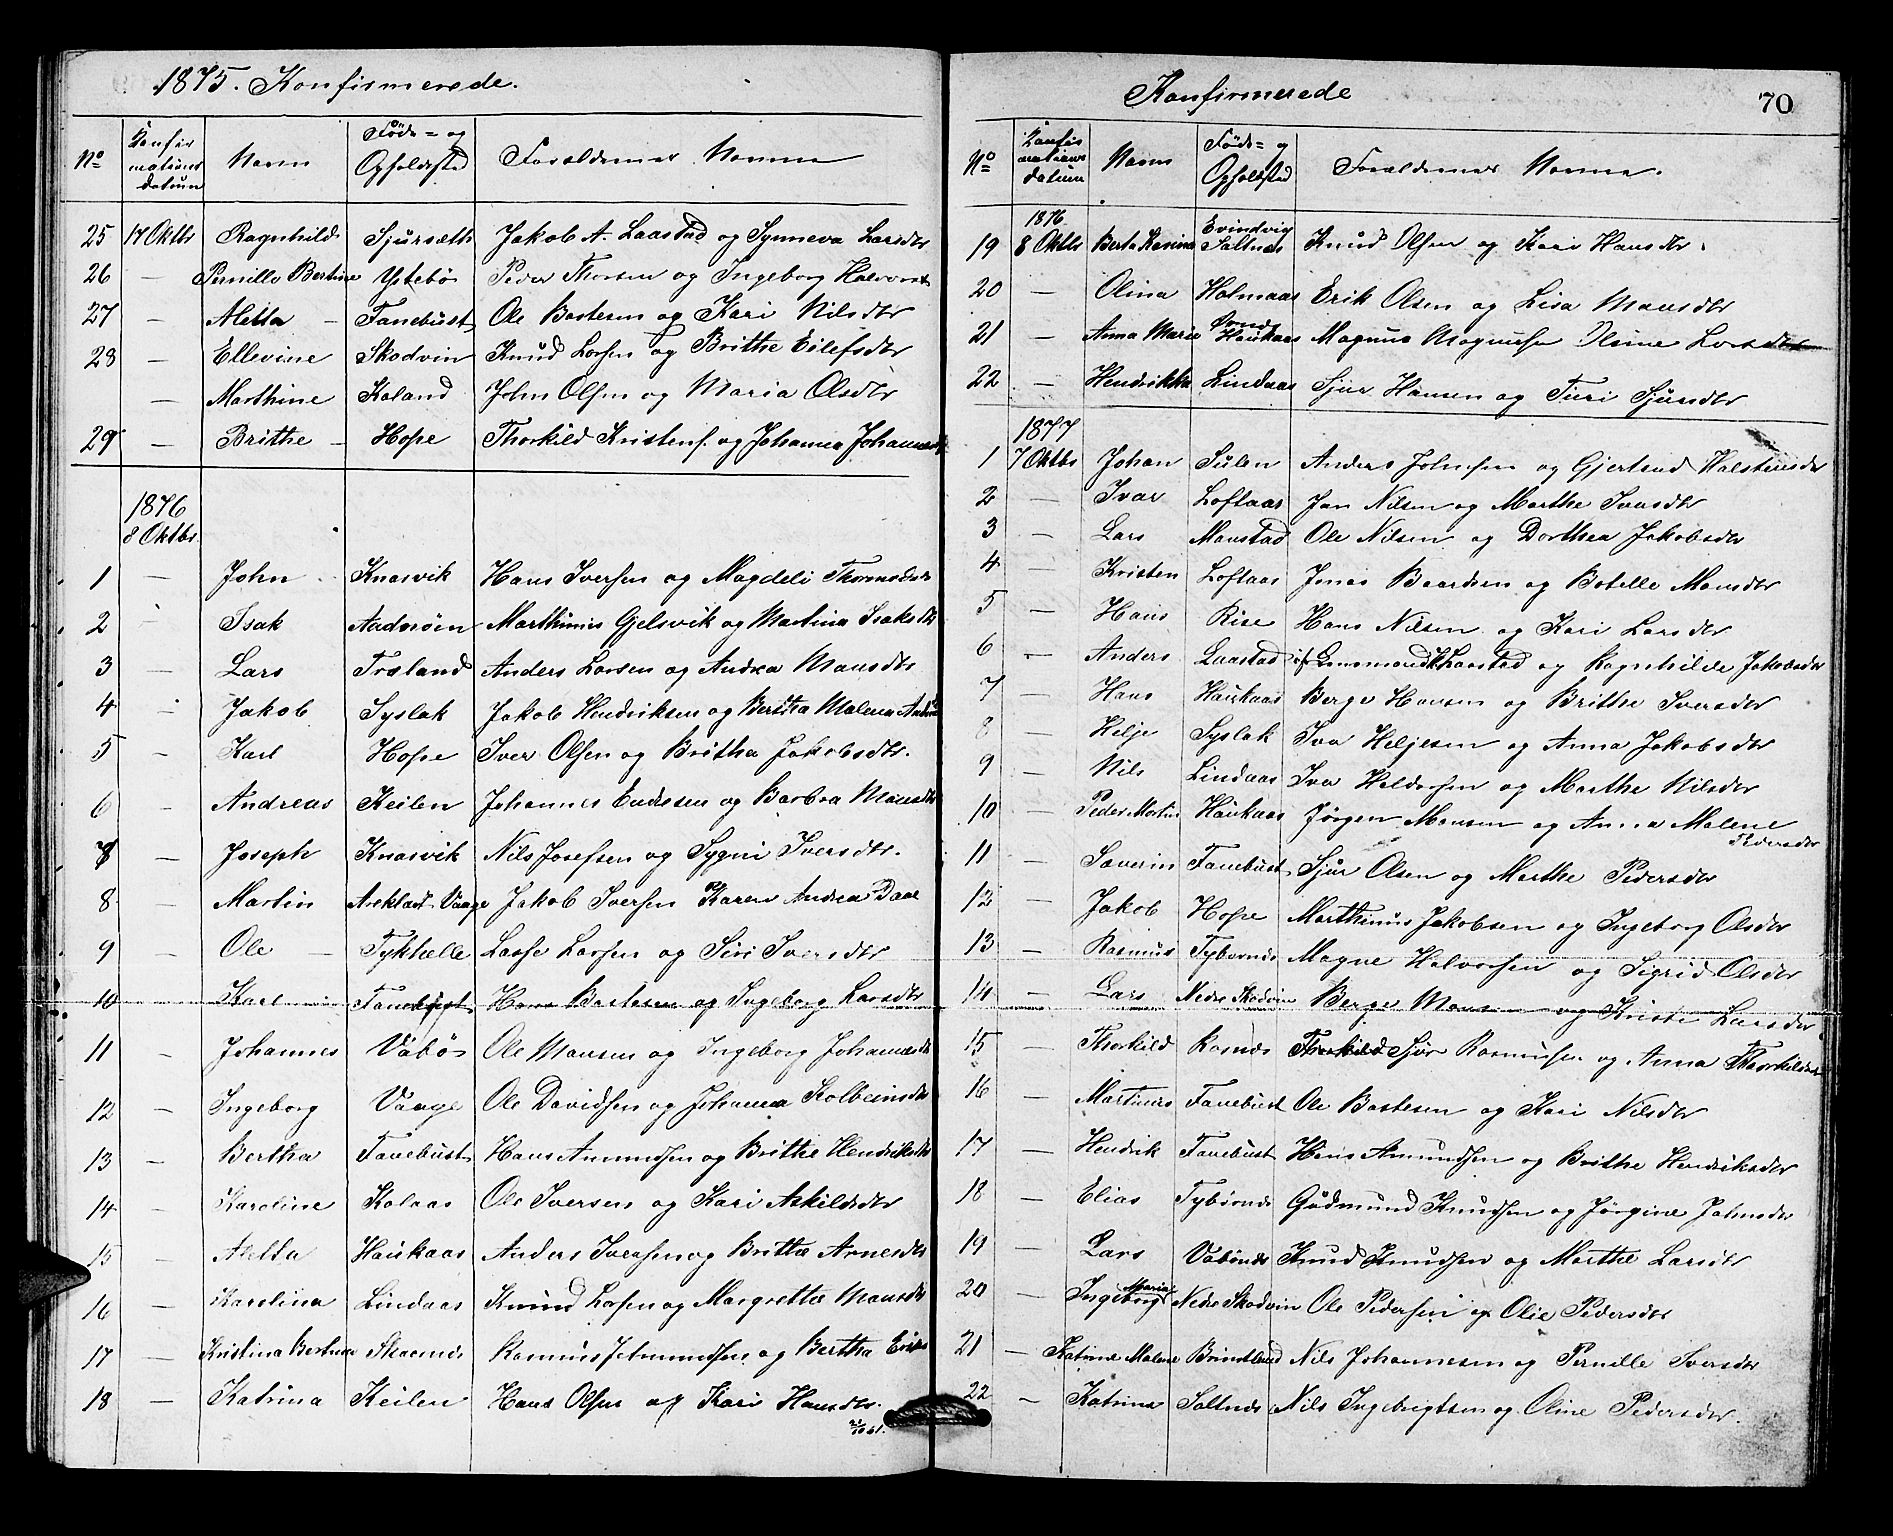 1875. Konfirmerede.
No Konfirmations datum Navn Føde- og Opholdssted Forældrenes Navne
25 17 Oktbr Ragnhilde Sjursæth Jakob A. Laastad og Synneva Larsdtr
26 — Pernille Bertine Ystebø Peder Thorsen og Ingeborg
27 — Aletta — Fanebust Ole Bastesen og Kari Nilsdtr
28 — Ellevine Skodvin Knud Larsen og Brithe Eilefsdtr
— Marthine Kaland John Olsen og Maria Olsdtr
29 — Brithe — Hope Thorkild Kristens. og Johanna
1876
8 Oktbr.
1 — John Knarvik Hans Iversen og Magdeli
2 — Isak Andvøen Marthinus Gjelsvik og Martina Isaksdtr
3 — Lars Træland Anders Larsen og Andrea Mansdtr
4 — Jakob Syslak Jakob Hendriksen og Malena
5 — Karl Hope Iver Olsen og Britha Jakobsdtr.
6 — Andreas Keilen Johannes Endresen og Barbra Mansdtr
7 — Joseph Knarvik Nils Josefsen og Sygni Iversdtr.
8 — Martin Vaage Jakob Iversen og Karen Andrea Daae
9 — Ole — Tykhelle Lasse Larsen og Siri Iversdtr
10 — Karl — Fanebust Hans Bastesen og Ingeborg Larsdtr
11 — Johannes Vabø Ole Mansen og Ingeborg Johannesdtr
12 — Ingeborg Vaage Ole Davidsen og Johanna Kolbeinsdtr
13 — Bertha Fanebust Hans Amundsen og Brithe Hendriksdtr
14 — Karoline Kolaas Ole Iversen og Kari Askildsdtr
15 — Aletta Haukaas Anders Iversen og Britta Arnesdtr
16 — Karolina Lindaas Knud Larsen og Margrethe Mansdtr
17 — Kristina Bertina Rasmus og Bertha
18 — Katrina Keilen Hans Olsen og Kari Hansdtr.
Konfirmerede
70
No Konfirmations datum Navn Føde- og Opholdssted Forældrenes Navne.
1876 Evindvig
19 8 Oktbr Berta Karina Saltnes Knud Olsen og Kari Hansdtr.
20 — Olina Holmaas Erik Olsen og Lisa Mansdtr
21 — Anna Marie Haukaas Magnus Magnusen Olsine Larsdtr
22 — Hendrikke Lindaas Sjur Hansen og Turi Sjursdtr
1877
1 7 Oktbr Johan Sulen Anders Johnsen og Gjertrud Halsteinsdtr
2 — Ivar Loftaas Jan Nilsen og Marthe Ivarsdtr
3 — Lars Monstad Ole Nilsen og Dorthea Jakobsdtr
4 — Kristen Loftaas Jonas Baardsen og Botelle Mansdtr
5 — Hans Rise Hans Nilsen og Kari Larsdtr
6 — Anders Laastad Laastad og Ragnhilde Jakobsdtr
7 — Hans Haukaas Berge Hansen og Brithe Iversdtr
8 — Helje Syslak Iva Heljesen og Anna Jakobsdtr
9 — Nils Lindaas Iva Haldorsen og Marthe Nilsdtr
10 — Peder Martin Haukaas Jørgen Monsen og Anna Malene
Pedersdtr
11 — Severin Fanebust Sjur Olsen og Marthe Pedersdtr
12 — Jakob Hope Marthinus Jakobsen og Ingeborg Olsdtr
13 — Rasmus Tybornes Magne Halvorsen og Sigrid Olsdtr
14 — Lars Nedre Skodvin Berge Monsen og Kristi Larsdtr
15 — Thorkild Rosnes Thorkild Sjur Rasmusen og Anna Thorkildsdtr
16 — Martinus Fanebust Ole Bastesen og Kari Nilsdtr
17 — Hendrik Fanebust Hans Amundsen og Brithe Hendriksdtr
18 — Elias Tybornes Gudmund Knudsen og Jørgine Johnsdtr
19 — Lars Vabønes Knud Knudsen og Marthe Larsdtr
20 — Ingeborg Maria Nedre Skodvin Ole Pedersen og Olie Pedersdtr
21 — Katrine Malene Nils Johannesen og Pernille Iversdtr
22 — Katrine Saltnes Nils Ingebrigtsen og Oline Pedersdtr.